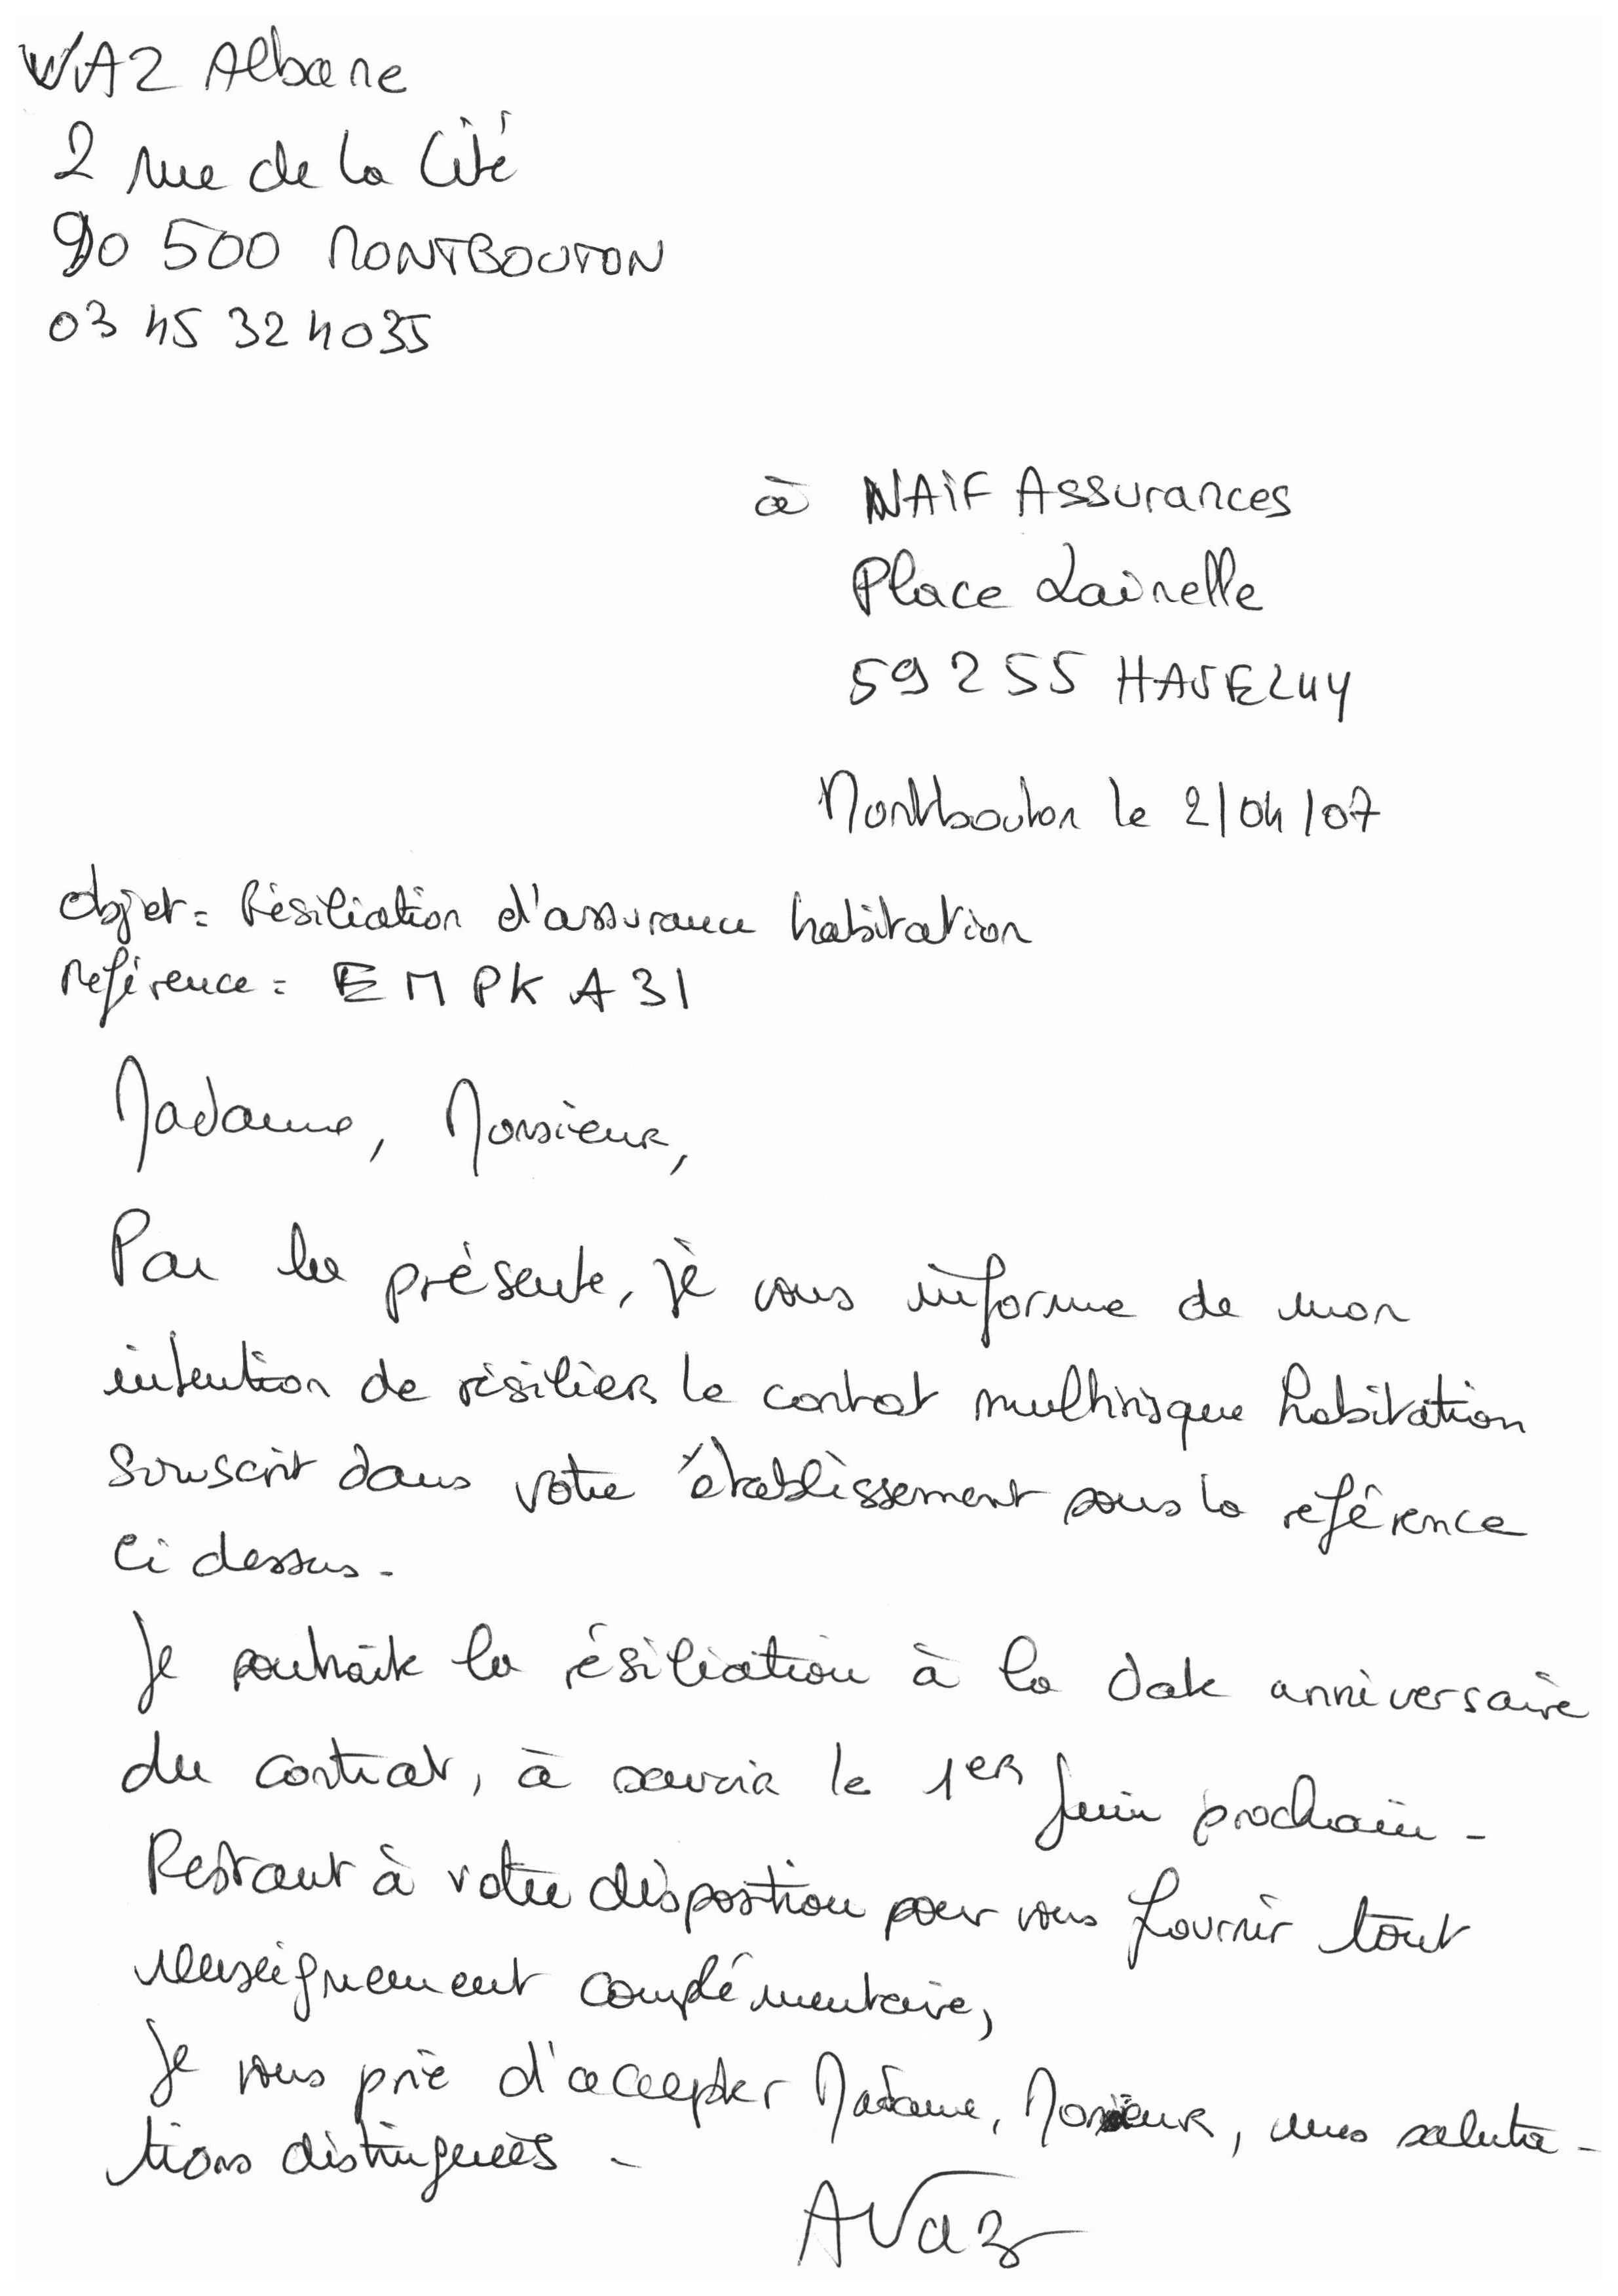 VAZ Albane
2 rue de la Cité
90 500 MONTBOUTON
03 45 32 40 35
à NAIF Assurances
Place Lainelle
59 255 HAVELUY
Montbouton le 2/04/07
Objet : Résiliation d'assurance habitation
Référence : EMPKA31
Madame, Monsieur,
Par la présente, je vous informe de mon
intention de résilier le contrat multirisque habitation
souscrit dans votre établissement sous la référence
ci dessus.
Je souhaite la résiliation à la date anniversaire
du contrat, à savoir le 1er Juin prochain.
Restant à votre dispostion pour vous fournir tout
renseignement complémentaire,
Je vous prie d'accepter Madame, Monsieur, mes saluta-
tions distinguées.
AVaz